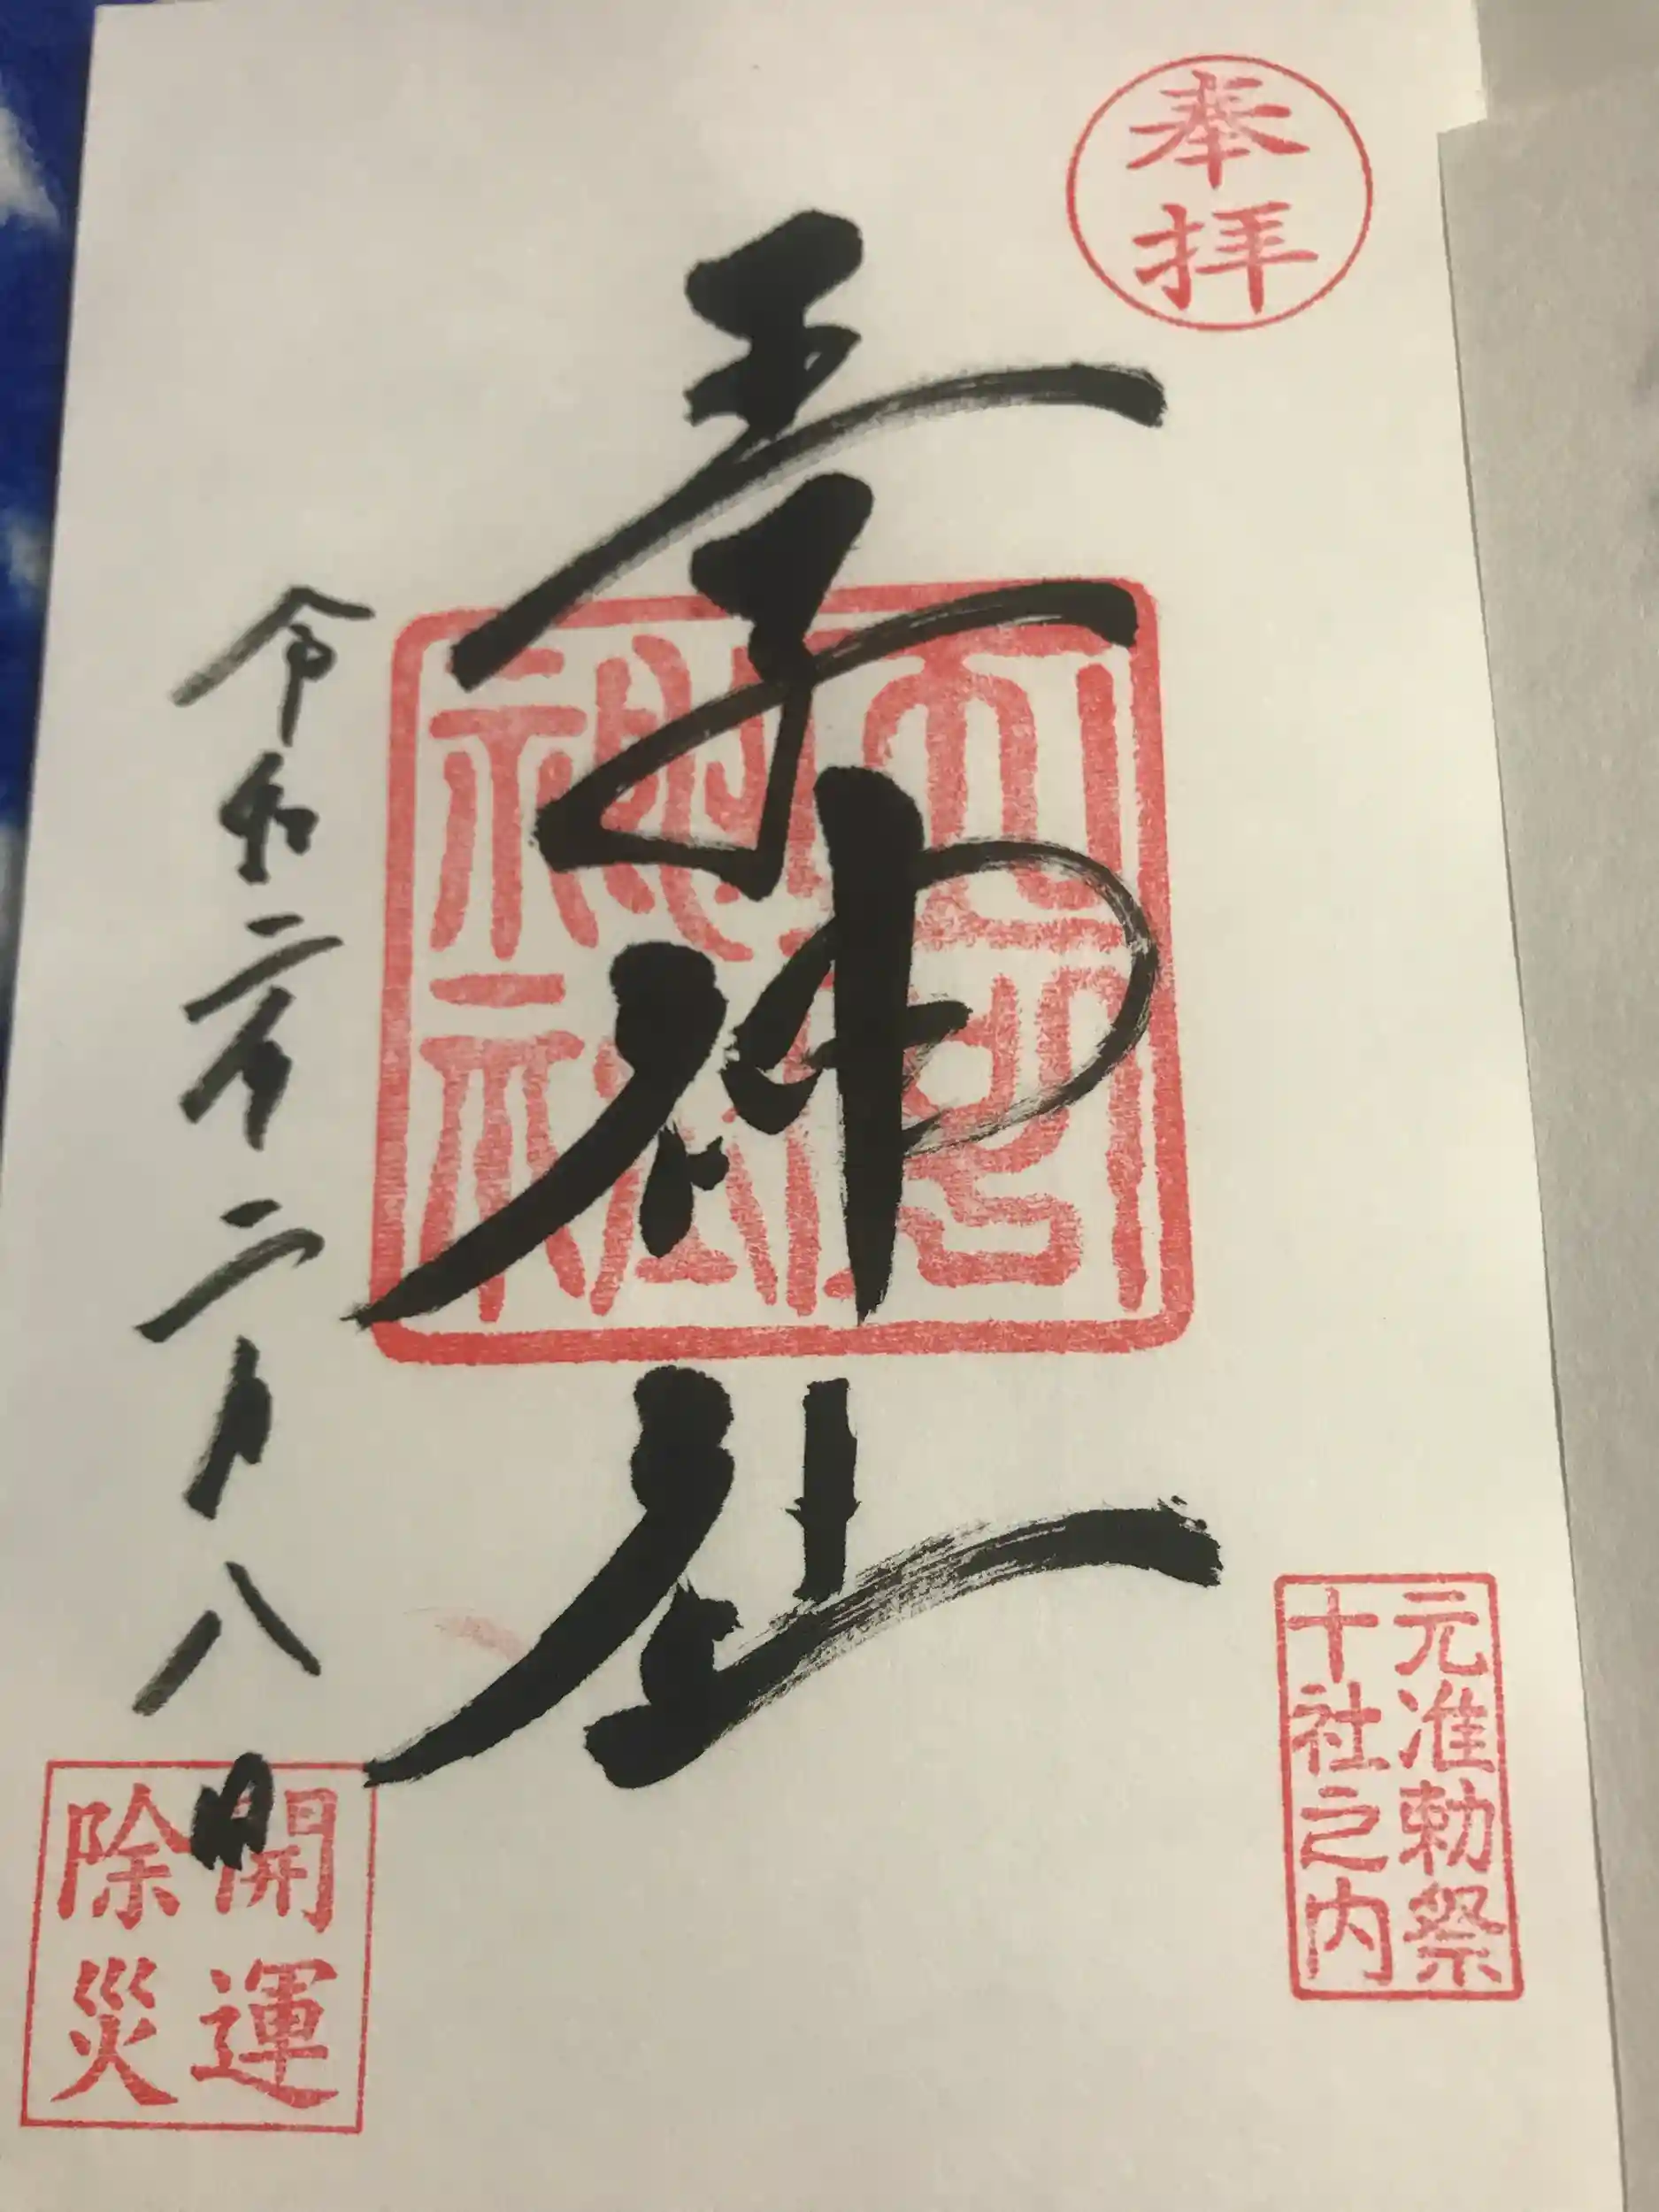 奉拝
元准勅祭
十社之内
王子神社
令和二年二月八日
開運
除災